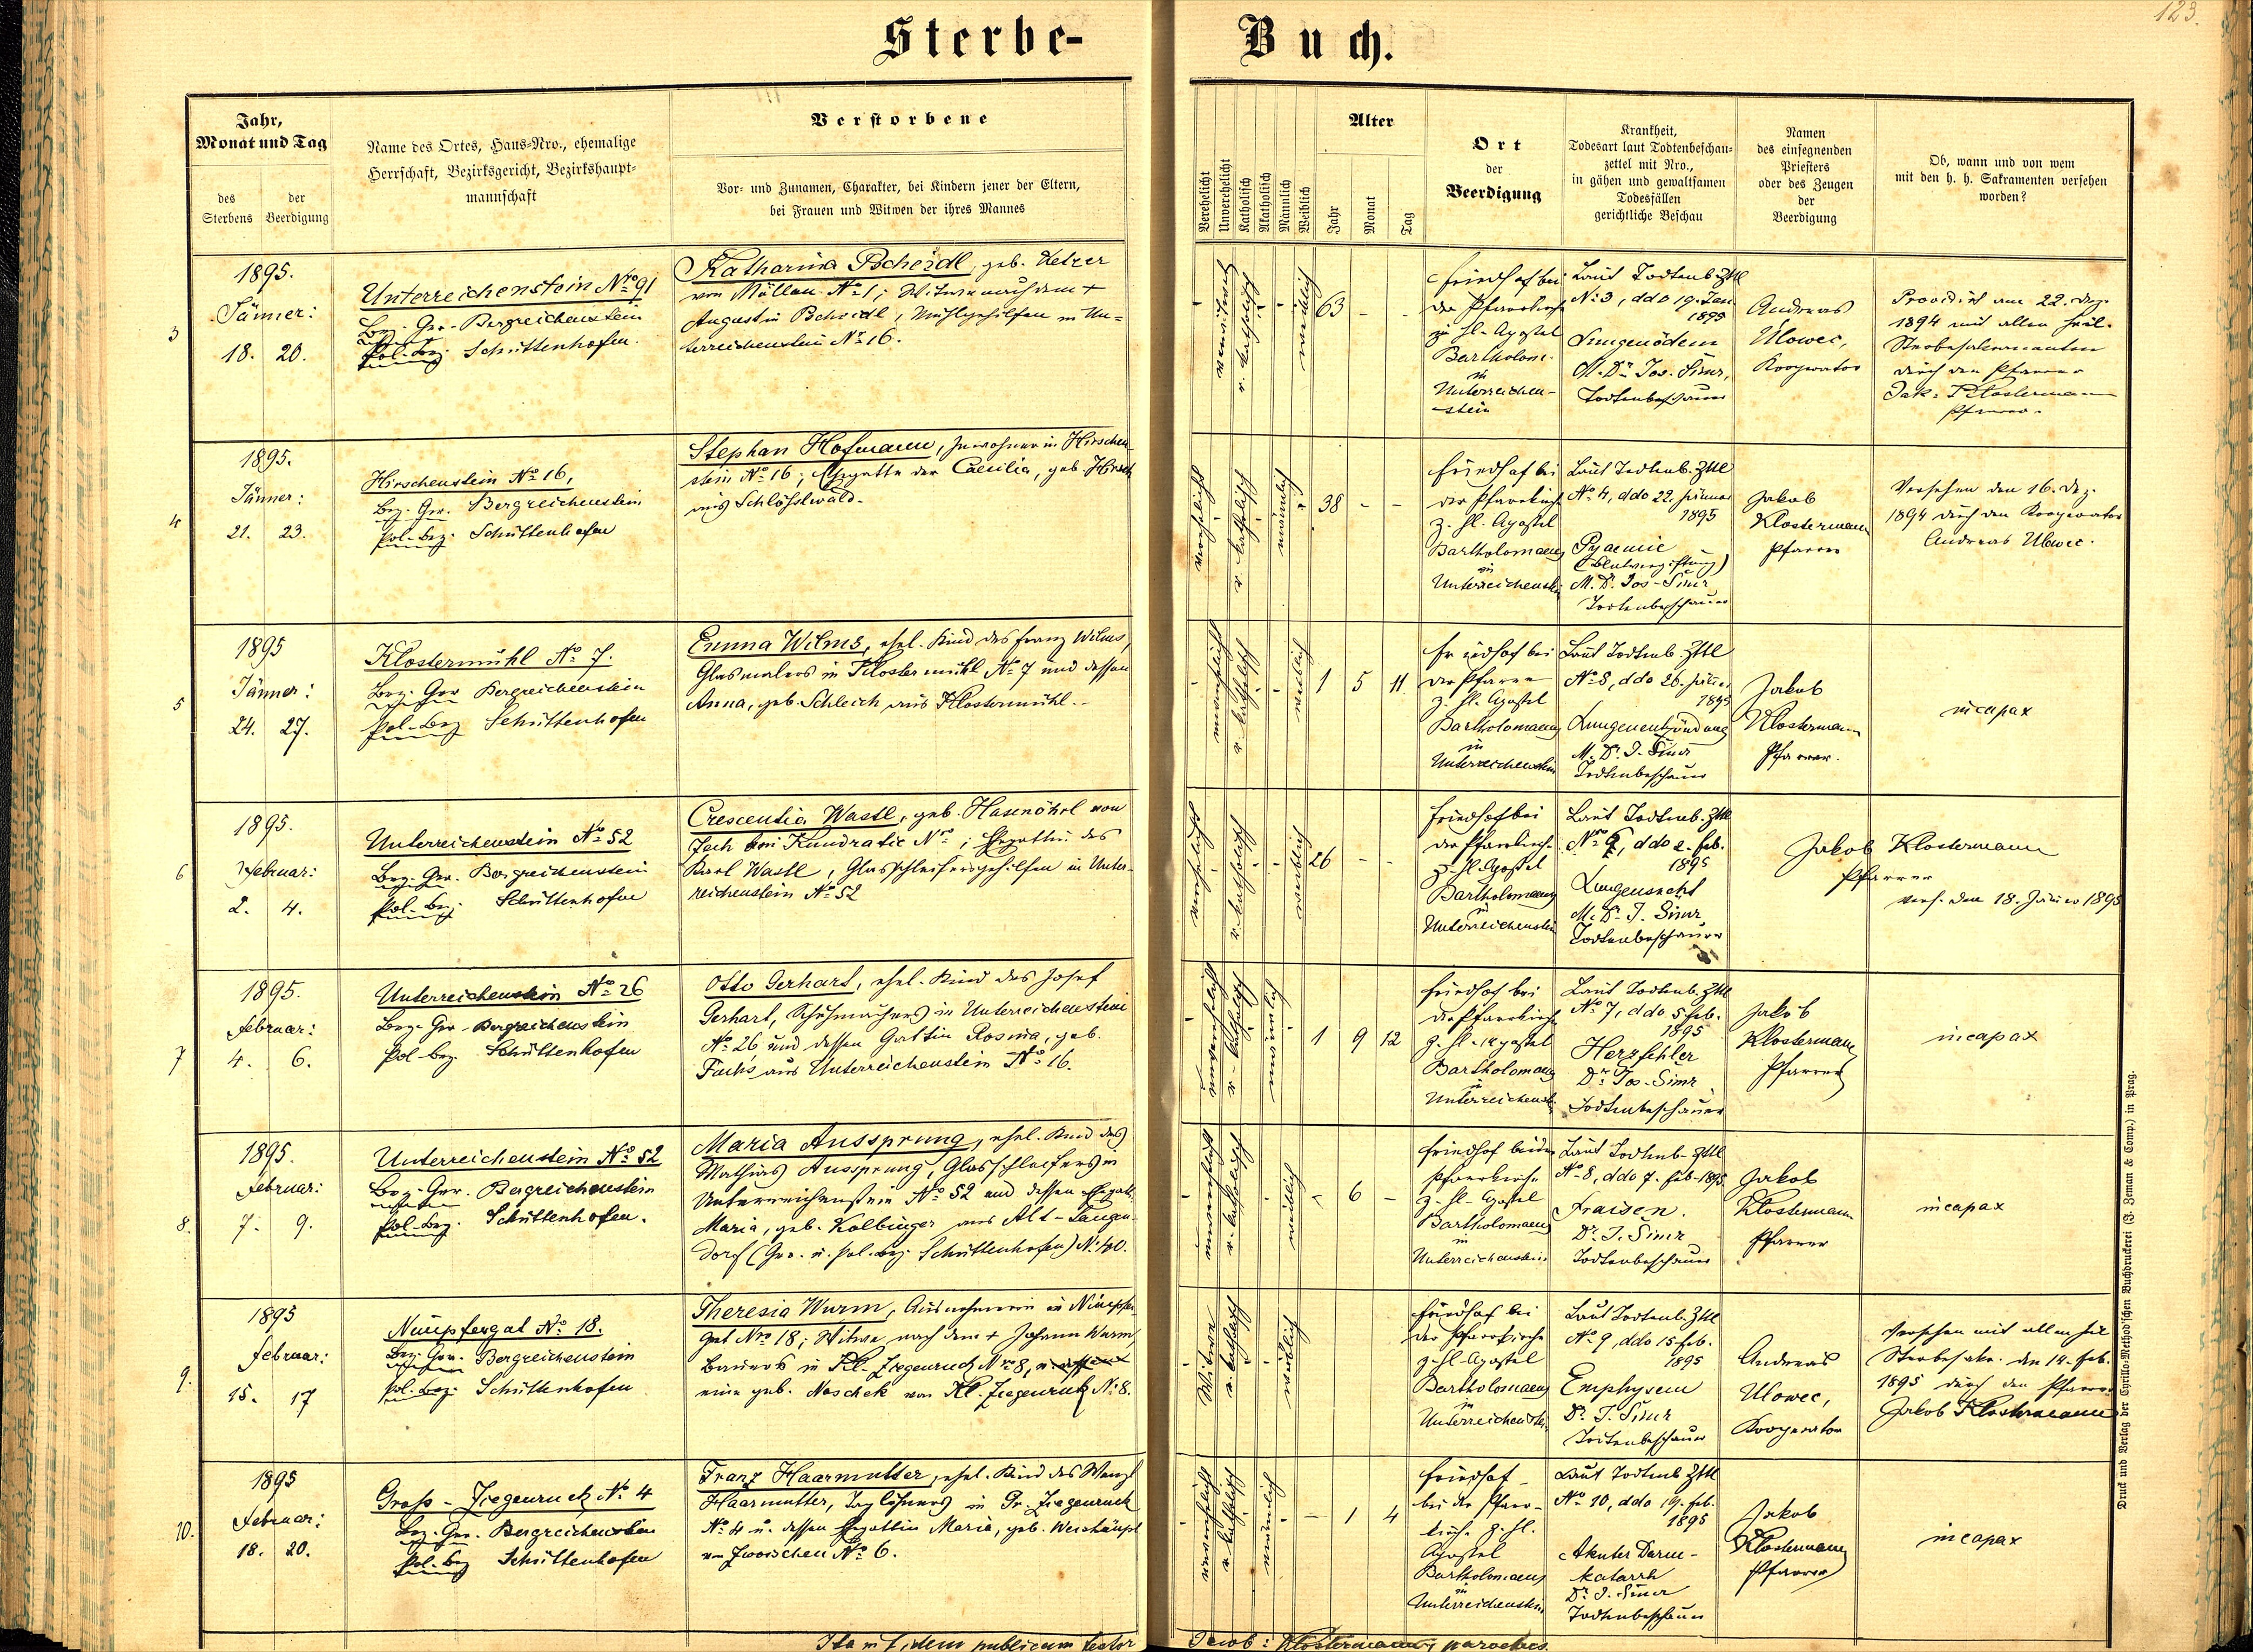 Sterbe-
Buch.
123.
Jahr,
Monat und Tag
des Sterbens
der Beerdigung
Name des Ortes, Haus-Nro., ehemalige
Herrschaft, Bezirksgericht, Bezirkshaupt-
mannschaft
Verstorbene
Vor- und Zunamen, Charakter, bei Kindern jener der Eltern,
bei Frauen und Witwen der ihres Mannes
Verehelicht
Unverehelicht
Katholisch
Akatholisch
Männlich
Weiblich
Alter
Jahr
Monat
Tag
Ort
der
Beerdigung
Krankheit,
Todesart laut Todtenbeschau-
zettel mit Nro.,
in gähen und gewaltsamen
Todesfällen
gerichtliche Beschau
Namen
des einsegnenden
Priesters
oder des Zeugen
der
Beerdigung
Ob, wann und von wem
mit den h. h. Sakramenten versehen
worden?
3
1895.
Jänner:
18. 20.
Unterreichenstein No 91
Bez.-Ger. Bergreichenstein
Pol.-Bez. Schüttenhofen.
Katharina Pscheidl, geb. Ketzer
von Nr. 1; Witwe nach dem +
Augustin Pscheidl, Mühlgehilfen in Un-
terreichenstein No 16.
verwitwet
r. katholisch
weiblich
63 - -
Friedhof bei
der Pfarrkirche
z. hl. Apostel
Bartholom.
in
Unterreichen-
stein
Laut Todtenb. Zttl
No 3, ddo 19. Jan.
1895
Lungenödem
M. Dr. Jos. Simr,
Todtenbeschauer
Andreas
Ulowec,
Kooperator
Providirt am 22. Dez.
1894 mit allen heil.
Sterbesakramenten
durch den Pfarrer
Jak. Klostermann
Pfarrer.
4
1895.
Jänner:
21. 23.
Hirschenstein No 16,
Bez. Ger. Bergreichenstein
Pol.-Bez. Schüttenhofen
Stephan Hofmann, Inwohner in Hirschen
stein No 16; Ehegatte der Caecilia, geb. Hirsch
aus Schlösselwald.
verehelicht
r. katholisch
männlich
38 - -
Friedhof bei
der Pfarrkirche
z. hl. Apostel
Bartholomaeus
in
Unterreichenstein
Laut Todtenb. Zttl
No 4, ddo 22. Jänner
1895
Pyaemie
(Blutvergiftung)
M. Dr. Jos. Simr
Todtenbeschauer
Jakob
Klostermann
Pfarrer
Versehen den 16. Dez.
1894 durch den Kooperator
Andreas Ulowec.
5
1895
Jänner:
24. 27.
Klostermühl No 7.
Bez. Ger Bergreichenstein
Pol.-Bez Schüttenhofen
Emma Wilms, ehel. Kind des Franz Wilms,
Glasmalers in Klostermühl No 7 und dessen
Anna, geb. Schleich aus Klostermühl.
unverehelicht
r. katholisch
weiblich
1 5 11.
Friedhof bei
der Pfarre
z. hl. Apostel
Bartholomaeus
in
Unterreichenstein
Laut Todtenb. Zttl
No 8, ddo 26. Jänner
1895
Lungenentzündung
M. Dr. J. Simr
Todtenbeschauer
Jakob
Klostermann
Pfarrer.
incapax
6
1895.
Februar:
2. 4.
Unterreichenstein No 52
Bez. Ger. Bergreichenstein
Pol.-Bez. Schüttenhofen
Crescentia Wastl, geb. Hasenöhrl von
bei Kundratic Nr. ; Ehegattin des
Karl Wastl, Glasschleifersgehilfen in Unter-
reichenstein No 52
verehelicht
r. katholisch
weiblich
26 - -
Friedhof bei
der Pfarrkirche
z. hl. Apostel
Bartholomaeus
in
Unterreichenstein
Laut Todtenb. Zttl
ddo 2. Feb.
1895
Lungensucht
M. Dr. J. Simr,
Todtenbeschauer
Jakob Klostermann
Pfarrer
vers. den 18. Jänner 1895
7
1895.
Februar:
4. 6.
Unterreichenstein No 26
Bez. Ger. Bergreichenstein
Pol-Bez. Schüttenhofen
Otto Gerhart, ehel. Kind des Josef
Gerhart, Schuhmachers in Unterreichenstein
No 26 und dessen Gattin Rosina, geb.
Fuchs aus Unterreichenstein No 16.
unverehelicht
r. katholisch
männlich
1 9 12
Friedhof bei
der Pfarrkirche
z. hl. Apostel
Bartholomaeus
in
Unterreichenst.
Laut Todtenb. Zttl
No 7, ddo 5 Feb.
1895
Herzfehler
Dr. Jos. Simr
Todtenbeschauer
Jakob
Klostermann
Pfarrer
incapax
8.
1895.
Februar:
7. 9.
Unterreichenstein No 52
Bez. Ger. Bergreichenstein
Pol.-Bez. Schüttenhofen.
Maria Aussprung, ehel. Kind des
Mathias Aussprung, Glasschleifers in
Unterreichenstein No 52 und dessen Ehegatt.
Maria, geb. Kolbinger aus Alt-Langen-
dorf (Ger. u. pol. Bez. Schüttenhofen) No 40.
unverehelicht
r. katholisch
weiblich
- 6 -
Friedhof bei der
Pfarrkirche
z. hl. Apostel
Bartholomaeus
in
Unterreichenstein.
Laut Todtenb. Zttl
No 8, ddo 7. Feb. 1895
Fraisen.
Dr. J. Simr
Todtenbeschauer
Jakob
Klostermann
Pfarrer
incapax
9.
1895
Februar:
15. 17
Nimpfergut No 18.
Bez. Ger. Bergreichenstein
Pol.-Bez. Schüttenhofen
Theresia Wurm, Ausnehmerin in Nimpfer
gut Nro 18; Witwe nach dem + Johann Wurm,
Bauers in Kl. Ziegenruck No 8,
eine geb. Noschek von Kl. Ziegenruck No 8.
Witwe
r. katholisch
weiblich
Friedhof bei
der Pfarrkirche
z. hl. Apostel
Bartholomaeus
in
Unterreichenstein
Laut Todtenb. Zttl
No 9, ddo 15 Feb.
1895
Emphysem
Dr. J. Simr
Todtenbeschauer
Andreas
Ulowec,
Kooperator
Versehen mit allen heil
Sterbesakr. den 14. Feb.
1895 durch den Pfarrer
Jakob Klostermann
10.
1895
Februar:
18. 20.
Gross-Ziegenruck No 4
Bez. Ger. Bergreichenstein
Pol.-Bez Schüttenhofen
Franz Haarmutter, ehel. Kind des Wenzl
Haarmutter, Taglöhners in Gr. Ziegenruck
No 4 u. dessen Ehegattin Maria, geb. Weishäupl
von Zwoischen No 6.
unverehelicht
r. katholisch
männlich
- 1 4
Friedhof
bei der Pfarr-
kirche z. hl.
Apostel
Bartholomaeus
in
Unterreichenstein
Laut Todtenb Zttl
No 10, ddo 19. Feb.
1895
Akuter Darm-
katarrh
Dr. J. Simr
Todtenbeschauer
Jakob
Klostermann
Pfarrer
incapax
Ita in fidem publicam testor
Jacob: Klostermann, parochus
Druck und Verlag der Cyrillo-Method'schen Buchdruckerei (J. Zeman & Comp.) in Prag.